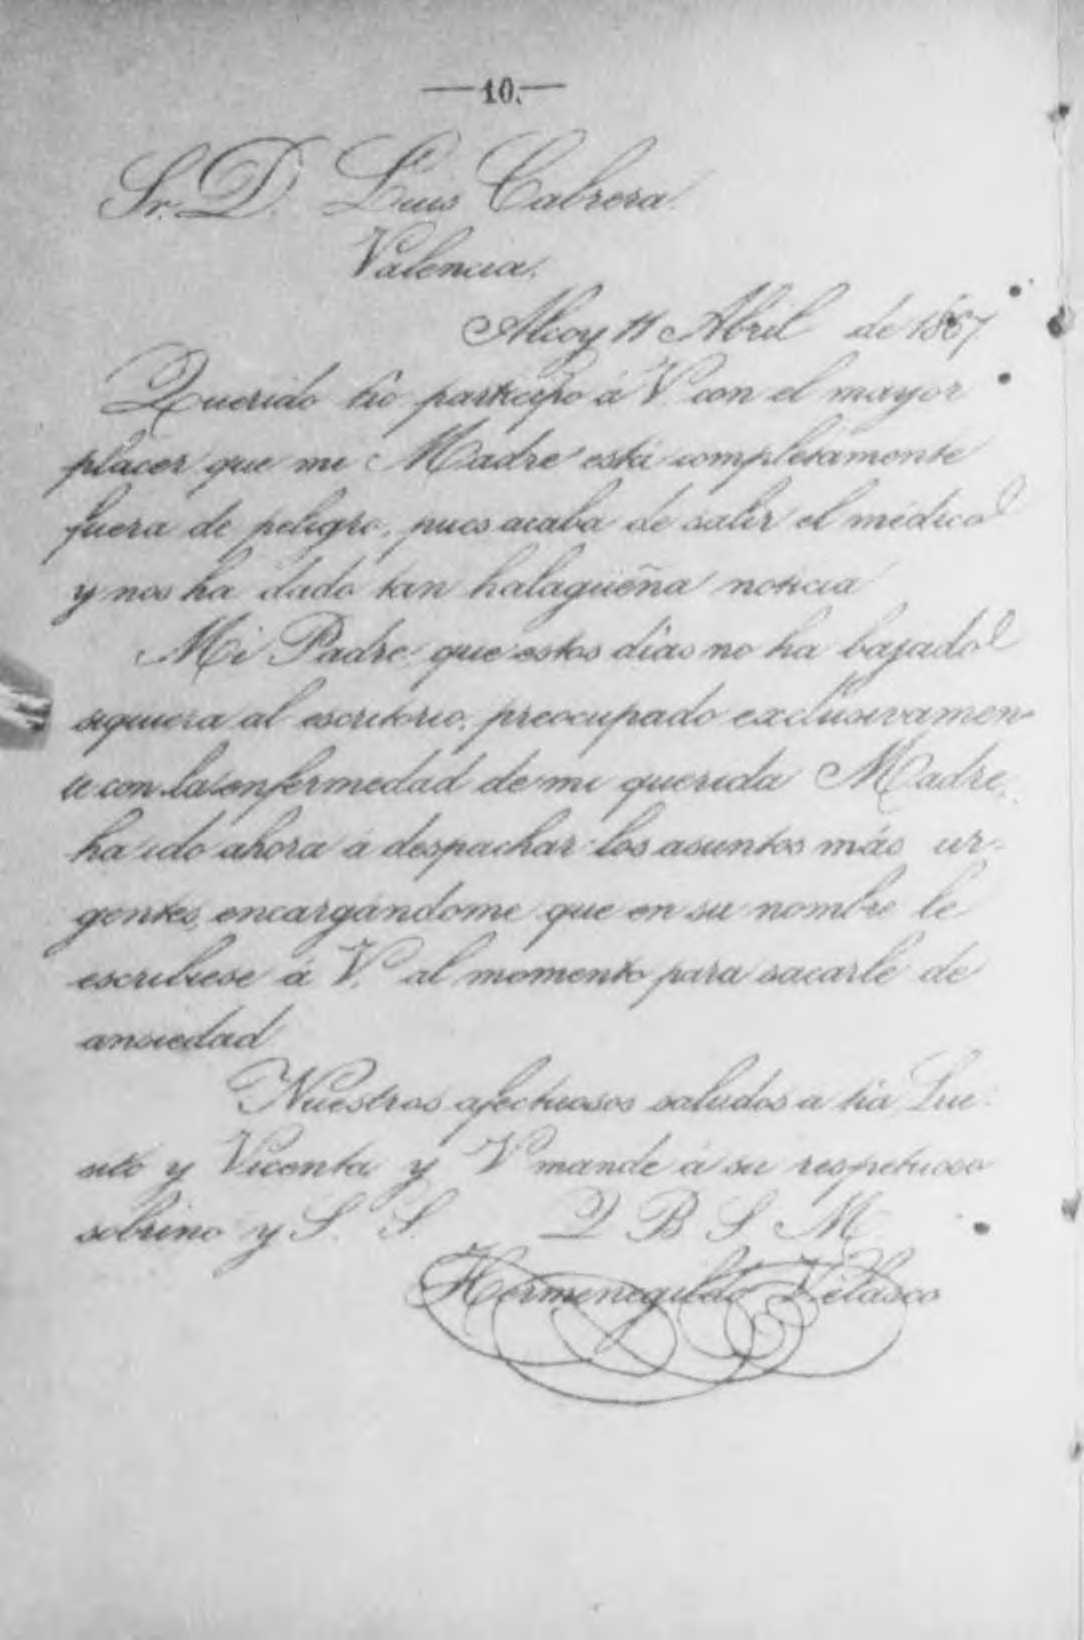 —10.—
Sr. D. Luis Cabrera.
Valencia.
Alcoy 11 Abril de 1867
Querido tio participo á V. con el mayor
placer que mi Madre está completamente
fuera de peligro, pues acaba de salir el médico
y nos ha dado tan halagüeña noticia
Mi Padre que estos dias no ha bajado
siquiera al escritorio, preocupado exclusivamen-
te con la enfermedad de mi querida Madre,
ha ido ahora á despachar los asuntos más ur-
gentes, encargándome que en su nombre le
escribiese á V. al momento para sacarle de
ansiedad
Nuestros afectuosos saludos a tia Lui-
sito y Vicenta y V mande á su respetuoso
sobrino y S. S. Q B S M
Hermenegildo Velasco